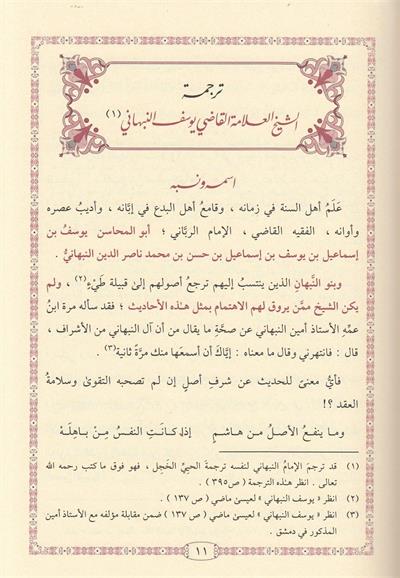 ترجمة
الشيخ العلامة القاضي يوسف النبهاني (١)
اسمه ونسبه
عَلَمُ أهل السنة في زمانه ، وقامعُ أهل البدع في إبَّانه ، وأديبُ عصره
وأوانه ، الفقيه القاضي ، الإمام الربَّاني ؛ أبو المحاسن يوسفُ بن
إسماعيل بن يوسف بن إسماعيل بن حسن بن محمد ناصر الدين النبهانيُّ .
وبنو النَّبهانِ الذين ينتسبُ إليهم ترجع أصولهم إلى قبيلة طَيِّءٍ(٢) ، ولم
يكن الشيخ ممَّن يروق لهم الاهتمام بمثل هـٰذه الأحاديث ؛ فقد سأله مرة ابنُ
عمِّه الأستاذ أمين النبهاني عن صحَّةِ ما يقال من أن آل النبهاني من الأشراف ،
قال : فانتهرني وقال ما معناه : إيَّاكَ أن أسمعَها منك مرَّةً ثانية(٣) .
فأيُّ معنىً للحديث عن شرفِ أصلٍ إن لم تصحبه التقوىٰ وسلامةُ
العقد ؟!
وما ينفـعُ الأصـلُ مـن هـاشـمٍ إذا كـانـتِ النفـسُ مِـنْ بـاهِلَـةْ
(١) قد ترجمَ الإمامُ النبهاني لنفسه ترجمةَ الحييِّ الخَجِل ، فهو فوق ما كتب رحمه الله
تعالى . انظر هـٰذه الترجمة ( ص٣٩٥ ) .
(٢) انظر « يوسف النبهاني » لعيسىٰ ماضي ( ص ١٣٧ ) .
(٣) انظر « يوسف النبهاني » لعيسىٰ ماضي ( ص ١٣٧ ) ضمن مقابلة مؤلفه مع الأستاذ أمين
المذكور في دمشق .
١١